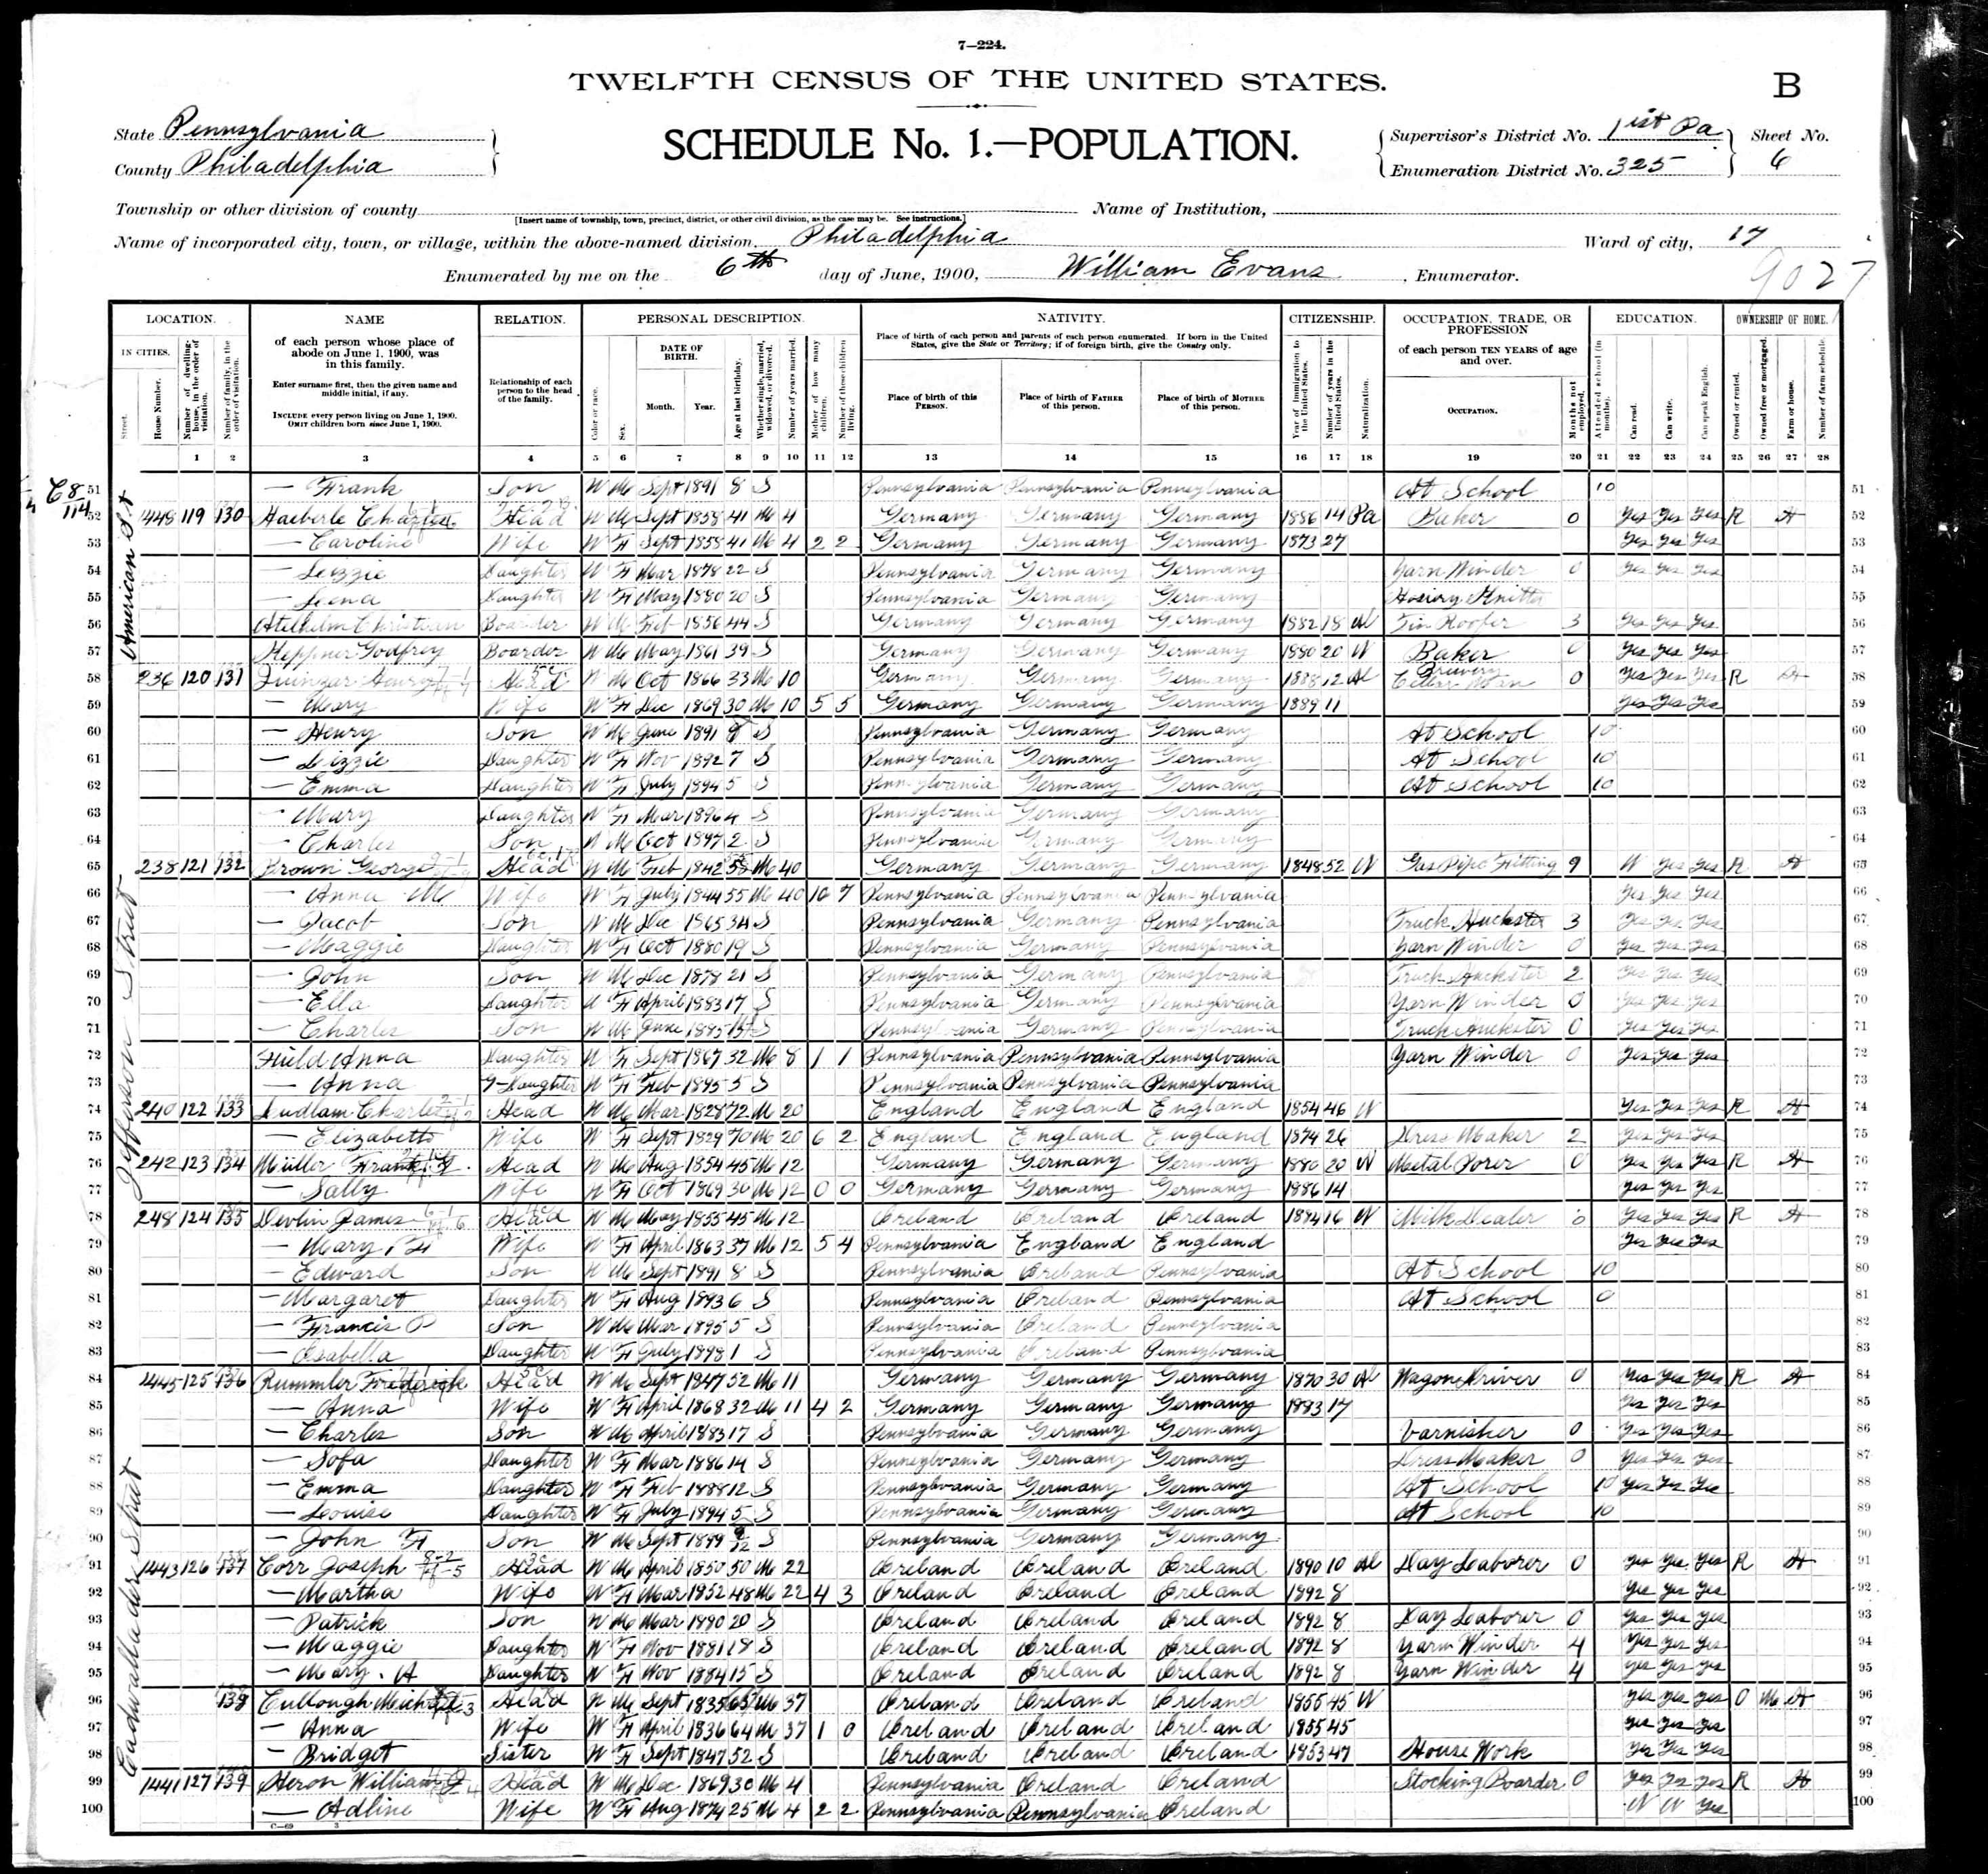 7—224.
TWELFTH CENSUS OF THE UNITED STATES.
B
State Pennsylvania
County Philadelphia
SCHEDULE No. 1.—POPULATION.
Supervisor's District No. 1ist Pa
Enumeration District No. 325
Sheet No.
6
Township or other division of county
[Insert name of township, town, precinct, district, or other civil division, as the case may be. See instructions.]
Name of Institution,
Name of incorporated city, town, or village, within the above-named division, Philadelphia
Ward of city, 17
Enumerated by me on the 6th day of June, 1900, William Evans, Enumerator.
9027
LOCATION. NAME RELATION. PERSONAL DESCRIPTION. NATIVITY. CITIZENSHIP. OCCUPATION, TRADE, OR PROFESSION EDUCATION. OWNERSHIP OF HOME.
IN CITIES.
Street.
House Number.
Number of dwelling-house, in the order of visitation.
Number of family, in the order of visitation.
of each person whose place of abode on June 1, 1900, was in this family.
Enter surname first, then the given name and middle initial, if any.
INCLUDE every person living on June 1, 1900.
OMIT children born since June 1, 1900.
Relationship of each person to the head of the family.
Color or race.
Sex.
DATE OF BIRTH.
Month. Year.
Age at last birthday.
Whether single, married, widowed, or divorced.
Number of years married.
Mother of how many children.
Number of these children living.
Place of birth of each person and parents of each person enumerated. If born in the United States, give the State or Territory; if of foreign birth, give the Country only.
Place of birth of this PERSON.
Place of birth of FATHER of this person.
Place of birth of MOTHER of this person.
Year of immigration to the United States.
Number of years in the United States.
Naturalization.
of each person TEN YEARS of age and over.
OCCUPATION.
Months not employed.
Attended school (in months).
Can read.
Can write.
Can speak English.
Owned or rented.
Owned free or mortgaged.
Farm or house.
Number of farm schedule.
1 2 3 4 5 6 7 8 9 10 11 12 13 14 15 16 17 18 19 20 21 22 23 24 25 26 27 28
American St
Jefferson Street
Cadwallader Street
51 — Frank Son W M Sept 1891 8 S Pennsylvania Pennsylvania Pennsylvania At School 10 51
52 1448 119 130 Haeberle Charles Head W M Sept 1858 41 M 4 Germany Germany Germany 1886 14 Pa Baker 0 Yes Yes Yes R H 52
53 — Caroline Wife W F Sept 1858 41 M 4 2 2 Germany Germany Germany 1873 27 Yes Yes Yes 53
54 — Lizzie Daughter W F Mar 1878 22 S Pennsylvania Germany Germany Yarn Winder 0 Yes Yes Yes 54
55 — Lena Daughter W F May 1880 20 S Pennsylvania Germany Germany Hosiery Knitter 55
56 Christian Boarder W M Feb 1856 44 S Germany Germany Germany 1882 18 Al Tin Roofer 3 Yes Yes Yes 56
57 Heppner Godfrey Boarder W M May 1861 39 S Germany Germany Germany 1880 20 N Baker 0 Yes Yes Yes 57
58 236 120 131 Henry Head W M Oct 1866 33 M 10 Germany Germany Germany 1888 12 Al Brewery Cellar Man 0 Yes Yes Yes R H 58
59 — Mary Wife W F Dec 1869 30 M 10 5 5 Germany Germany Germany 1889 11 Yes Yes Yes 59
60 — Henry Son W M June 1891 8 S Pennsylvania Germany Germany At School 10 60
61 — Lizzie Daughter W F Nov 1892 7 S Pennsylvania Germany Germany At School 10 61
62 — Emma Daughter W F July 1894 5 S Pennsylvania Germany Germany At School 10 62
63 — Mary Daughter W F Mar 1896 4 S Pennsylvania Germany Germany 63
64 — Charles Son W M Oct 1897 2 S Pennsylvania Germany Germany 64
65 238 121 132 Brown George Head W M Feb 1842 58 M 40 Germany Germany Germany 1848 52 N Gas Pipe Fitting 9 N Yes Yes R H 65
66 — Anna M Wife W F July 1844 55 M 40 16 7 Pennsylvania Pennsylvania Pennsylvania Yes Yes Yes 66
67 — Jacob Son W M Dec 1865 34 S Pennsylvania Germany Pennsylvania Truck Huckster 3 Yes Yes Yes 67
68 — Maggie Daughter W F Oct 1880 19 S Pennsylvania Germany Pennsylvania Yarn Winder 0 Yes Yes Yes 68
69 — John Son W M Dec 1878 21 S Pennsylvania Germany Pennsylvania Truck Huckster 2 Yes Yes Yes 69
70 — Ella Daughter W F April 1883 17 S Pennsylvania Germany Pennsylvania Yarn Winder 0 Yes Yes Yes 70
71 — Charles Son W M June 1885 S Pennsylvania Germany Pennsylvania Truck Huckster 0 Yes Yes Yes 71
72 Field Anna Daughter W F Sept 1867 32 M 8 1 1 Pennsylvania Pennsylvania Pennsylvania Yarn Winder 0 Yes Yes Yes 72
73 — Anna G-Daughter W F Feb 1895 5 S Pennsylvania Pennsylvania Pennsylvania 73
74 240 122 133 Ludlam Charles Head W M Mar 1828 72 M 20 England England England 1854 46 N Yes Yes Yes R H 74
75 — Elizabeth Wife W F Sept 1829 70 M 20 6 2 England England England 1874 26 Dress Maker 2 Yes Yes Yes 75
76 242 123 134 Müller Frank Head W M Aug 1854 45 M 12 Germany Germany Germany 1880 20 N Metal Porer 0 Yes Yes Yes R H 76
77 — Sally Wife W F Oct 1869 30 M 12 0 0 Germany Germany Germany 1886 14 Yes Yes Yes 77
78 248 124 135 Devlin James Head W M May 1855 45 M 12 Ireland Ireland Ireland 1884 16 N Milk Dealer 0 Yes Yes Yes R H 78
79 — Mary Wife W F April 1863 37 M 12 5 4 Pennsylvania England England Yes Yes Yes 79
80 — Edward Son W M Sept 1891 8 S Pennsylvania Ireland Pennsylvania At School 10 80
81 — Margaret Daughter W F Aug 1893 6 S Pennsylvania Ireland Pennsylvania At School 0 81
82 — Francis P Son W M Mar 1895 5 S Pennsylvania Ireland Pennsylvania 82
83 — Isabella Daughter W F July 1898 1 S Pennsylvania Ireland Pennsylvania 83
84 1445 125 136 Rummler Frederick Head W M Sept 1847 52 M 11 Germany Germany Germany 1870 30 Al Wagon Driver 0 Yes Yes Yes R H 84
85 — Anna Wife W F April 1868 32 M 11 4 2 Germany Germany Germany 1883 17 Yes Yes Yes 85
86 — Charles Son W M April 1883 17 S Pennsylvania Germany Germany Varnisher 0 Yes Yes Yes 86
87 — Sofa Daughter W F Mar 1886 14 S Pennsylvania Germany Germany Dress Maker 0 Yes Yes Yes 87
88 — Emma Daughter W F Feb 1888 12 S Pennsylvania Germany Germany At School 10 Yes Yes Yes 88
89 — Louise Daughter W F July 1894 5 S Pennsylvania Germany Germany At School 10 89
90 — John F Son W M Sept 1899 9/12 S Pennsylvania Germany Germany 90
91 1443 126 137 Corr Joseph Head W M April 1850 50 M 22 Ireland Ireland Ireland 1890 10 Al Day Laborer 0 Yes Yes Yes R H 91
92 — Martha Wife W F Mar 1852 48 M 22 4 3 Ireland Ireland Ireland 1892 8 Yes Yes Yes 92
93 — Patrick Son W M Mar 1880 20 S Ireland Ireland Ireland 1892 8 Day Laborer 0 Yes Yes Yes 93
94 — Maggie Daughter W F Nov 1881 18 S Ireland Ireland Ireland 1892 8 Yarn Winder 4 Yes Yes Yes 94
95 — Mary. A Daughter W F Nov 1884 15 S Ireland Ireland Ireland 1892 8 Yarn Winder 4 Yes Yes Yes 95
96 138 Cullough Michael Head W M Sept 1835 M 37 Ireland Ireland Ireland 1855 45 N Yes Yes Yes O M H 96
97 — Anna Wife W F April 1836 64 M 37 1 0 Ireland Ireland Ireland 1855 45 Yes Yes Yes 97
98 — Bridget Sister W F Sept 1847 52 S Ireland Ireland Ireland 1853 47 House Work Yes Yes Yes 98
99 1441 127 139 Heron William Head W M Dec 1869 30 M 4 Pennsylvania Ireland Ireland Stocking Boarder 0 Yes Yes Yes R H 99
100 — Adline Wife W F Aug 1874 25 M 4 2 2 Pennsylvania Pennsylvania Ireland N N Yes 100